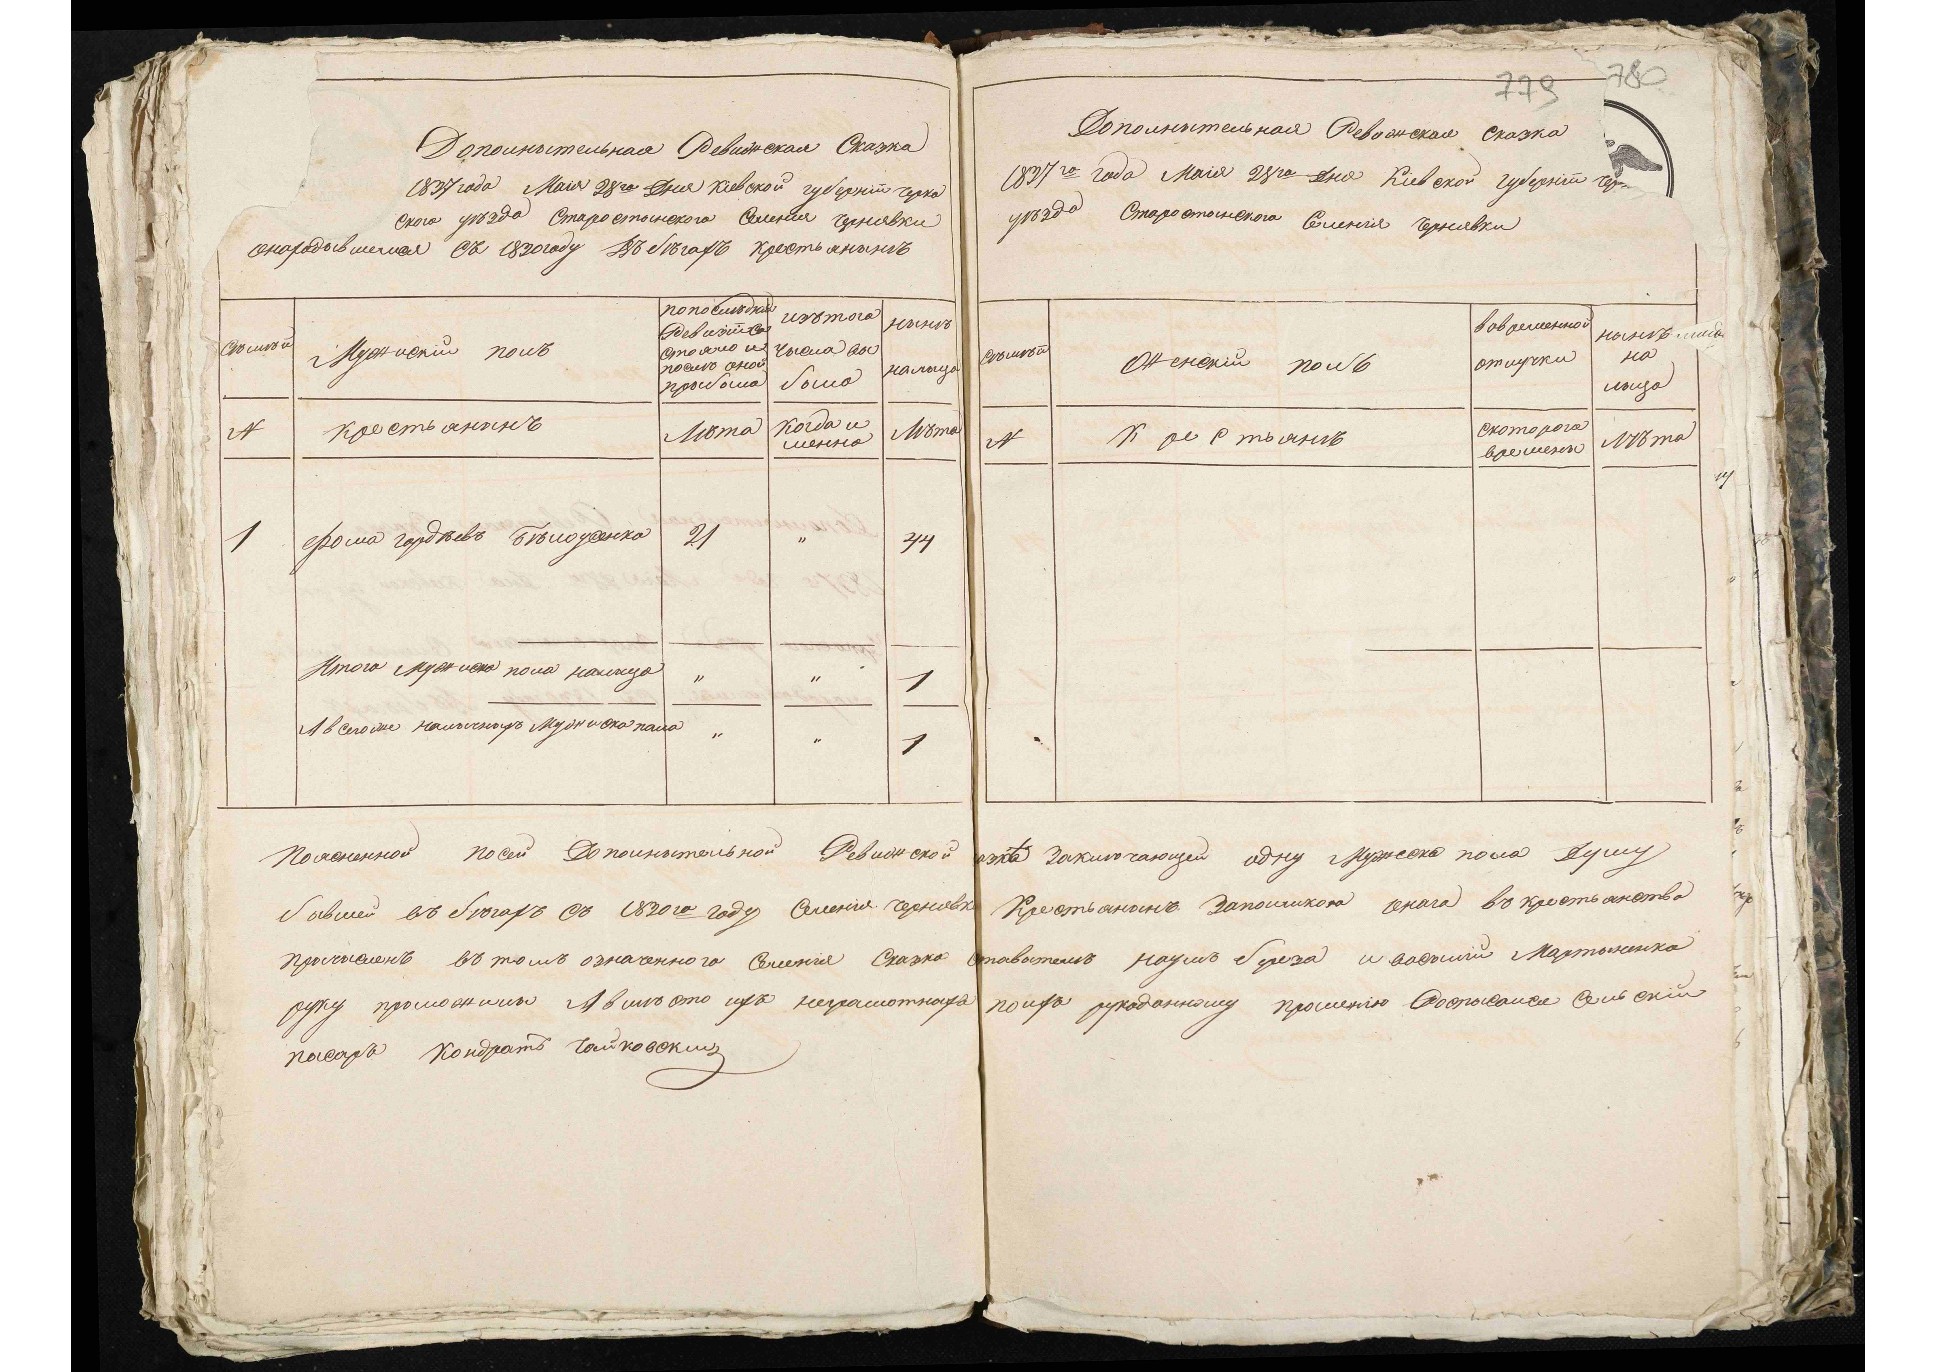 779 780
Дополнительная Ревижская Сказка
1837 года Маія 28го Дня Кіевской губерніи Черка
ского уѣзда Старостынского Селенія Чернявки
онародывшемся Съ 1820 году Въ бѣгахъ крестьянынѣ
Семьи
Мужискій полъ
попослѣдней Ревизіи состояло и послѣ оной прибыло
изътого числа выбыло
нынѣ налыцо
N
крестьянынъ
Лѣта
Когда именно
Лѣта
1
Фома гордѣевъ Бѣлоусенко
21
"
44
Итого Мужиска пола налыцо
"
"
1
А всегоже налычныхъ Мужиска пола
"
"
1
Дополнытельная Ревижская Сказка
1837го года Маія 28го Дня Кіевской Губерніи Чер
уѣзда Старостынского Селенія Чернявки
Семьи
Женскій полъ
вовременной отлучки
нынѣ на лыцо
N
Крестьянѣ
скоторого времены
Лѣта
Поясненной посей Дополнытельной Ревижской Заключающей одну Мужеска пола Душу
бывшей въ бѣгахъ Съ 1820го году Селенія Чернявки Крестьянынъ онаго въ крестьянства
прычисленъ въ томъ означенного Селенія Сказко ставателѣ наумъ береза и васылій Мартыненко
руку прыложилы А вмѣсто ихъ неграмотныхъ поихъ рукоданному прошенію Росписался Сельскій
писарь Кондратъ Чайковскій